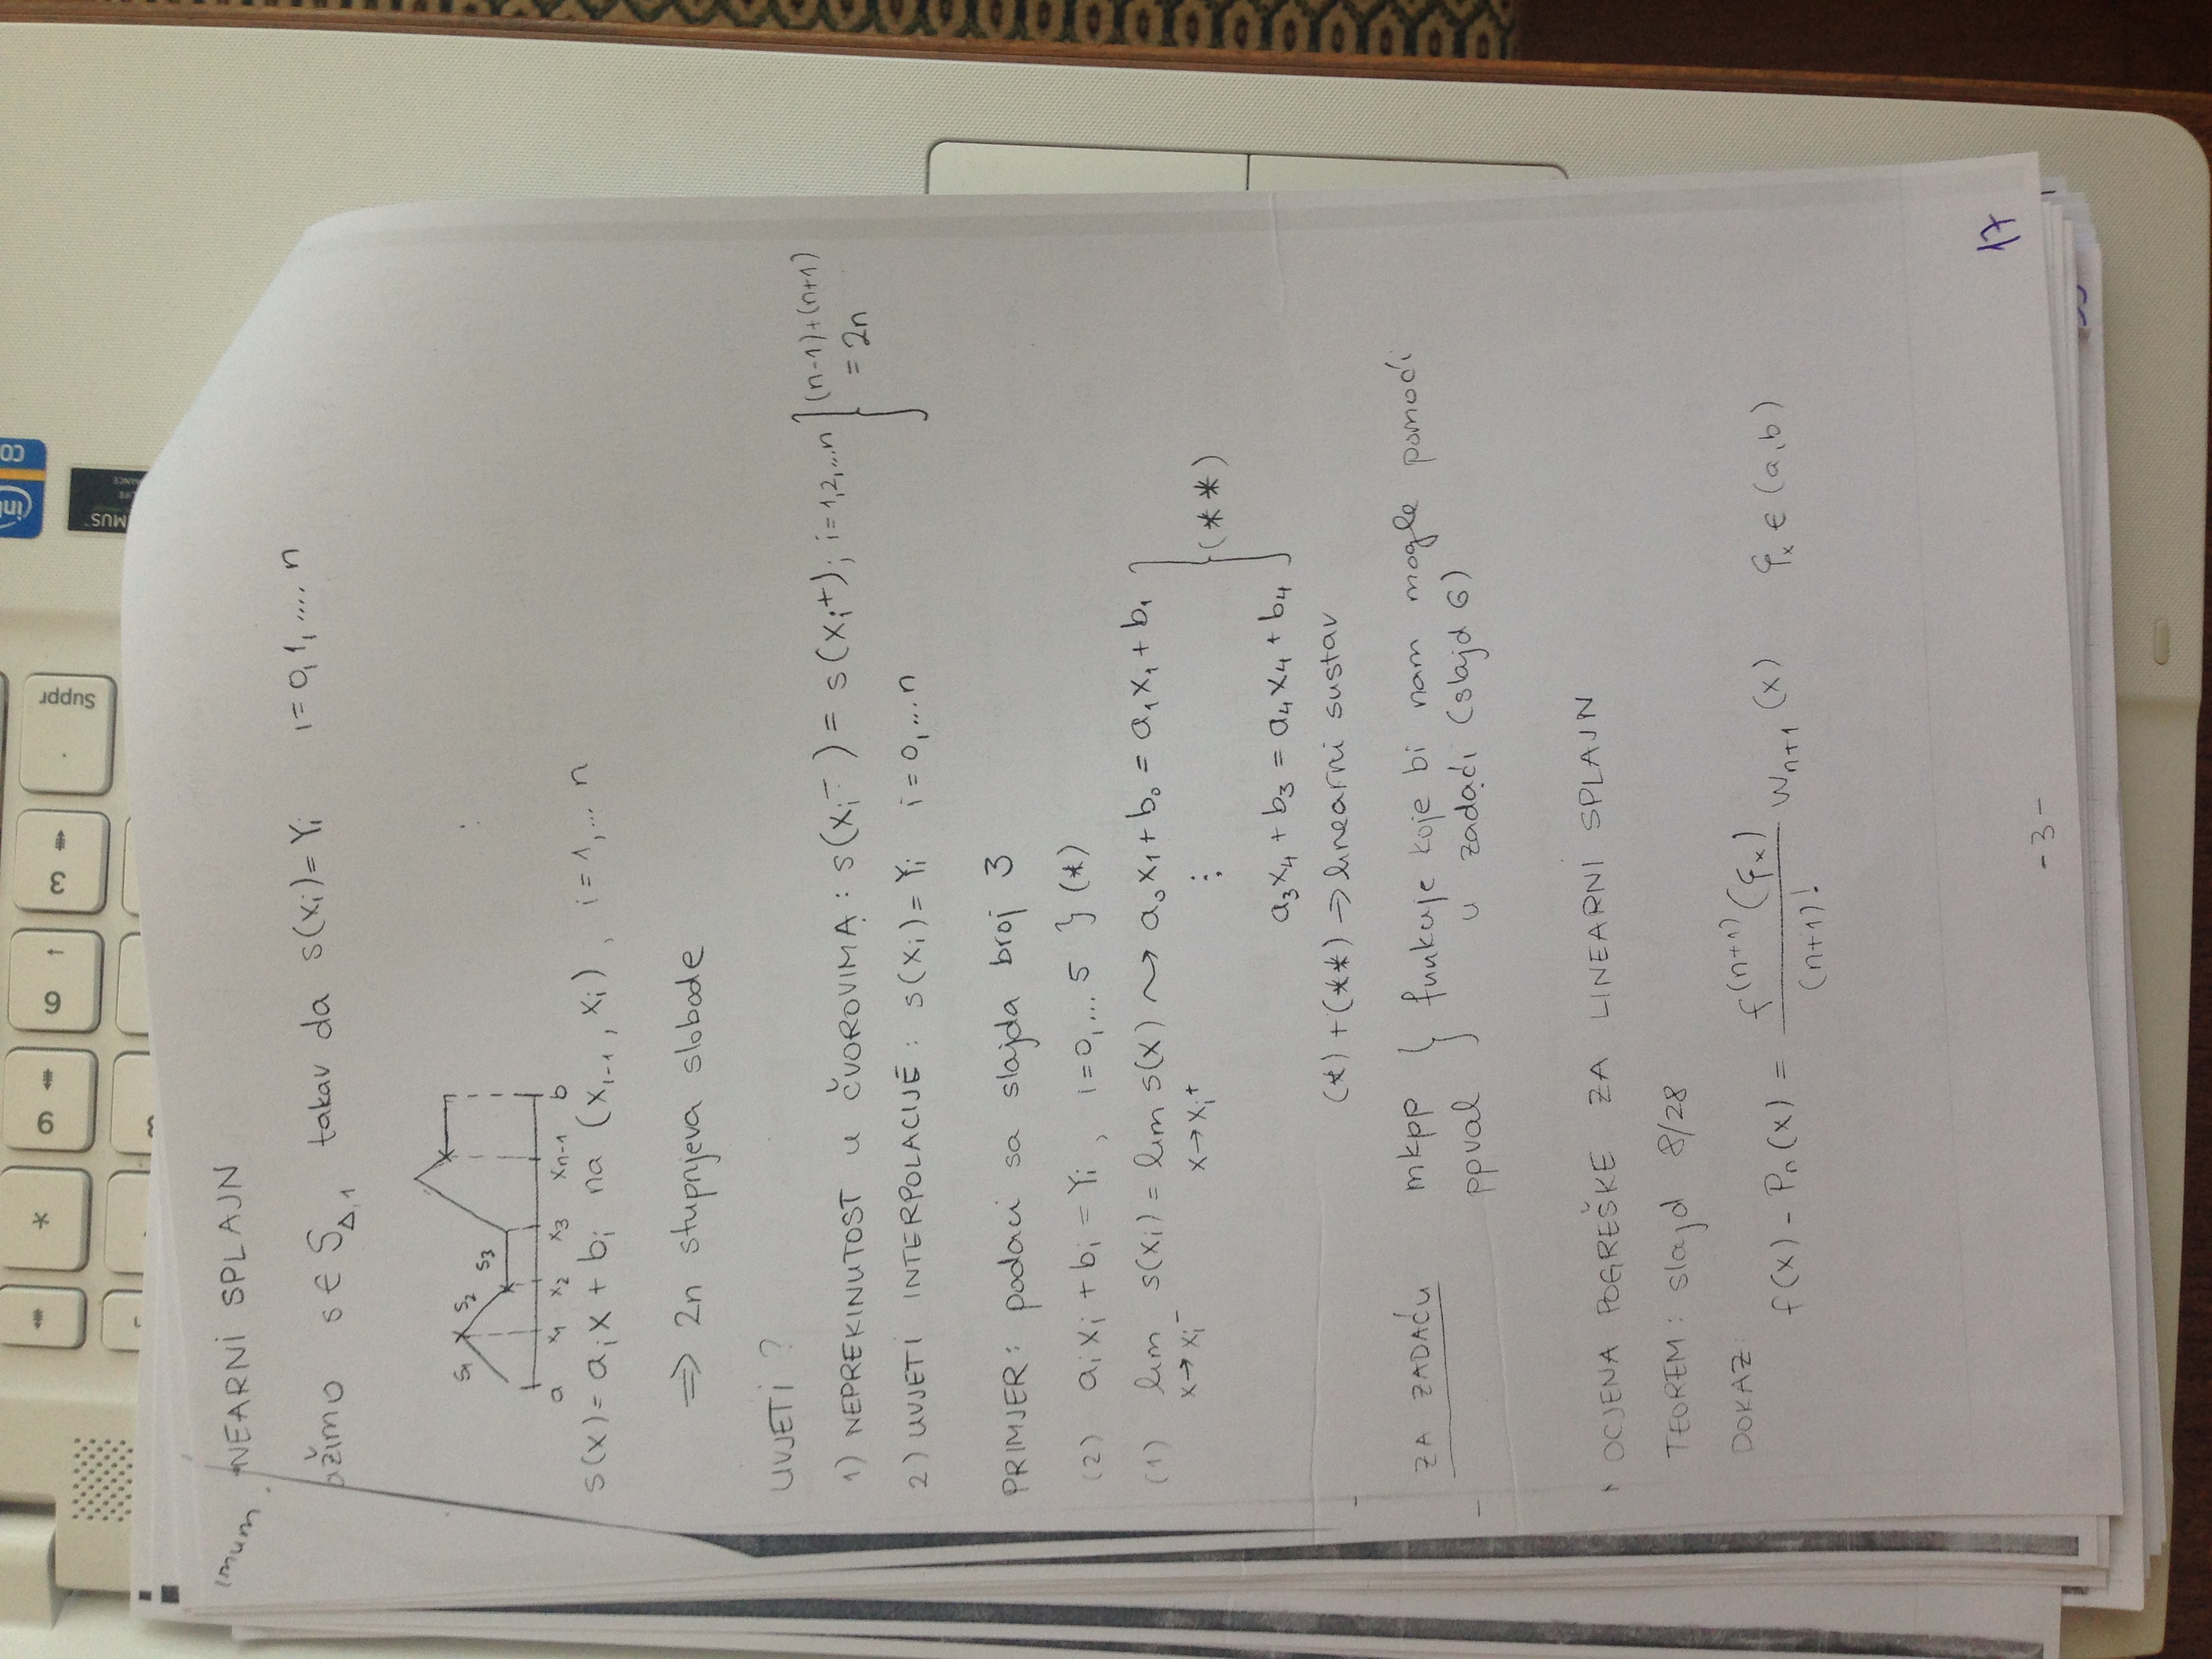 * 9 6 → 3 . Suppr
MUS
imum
NEARNI SPLAJN
ažimo s ∈ S_Δ,1 takav da s(x_i) = Y_i i = 0, 1, .... n
s_1 s_2 s_3
a x_1 x_2 x_3 x_n-1 b
s(x) = a_i x + b_i na (x_i-1, x_i), i = 1, ... n
⇒ 2n stupnjeva slobode
UVJETI ?
1) NEPREKINUTOST U ČVOROVIMA: s(x_i^-) = s(x_i^+); i = 1,2,...n } (n-1)+(n+1)
= 2n
2) UVJETI INTERPOLACIJE: s(x_i) = Y_i i = 0, ... n
PRIMJER: podaci sa slajda broj 3
(2) a_i x_i + b_i = Y_i, i = 0, ... 5 } (*)
(1) lim s(x_i) = lim s(x) ⇝ a_0 x_1 + b_0 = a_1 x_1 + b_1
x → x_i^- x → x_i^+ ⋮ } (**)
a_3 x_4 + b_3 = a_4 x_4 + b_4
(*) + (**) → linearni sustav
ZA ZADAĆU mkpp } funkcije koje bi nam mogle pomoći
ppval u zadaći (slajd 6)
OCJENA POGREŠKE ZA LINEARNI SPLAJN
TEOREM: slajd 8/28
DOKAZ:
f(x) - P_n(x) = f^(n+1)(ξ_x) / (n+1)! w_n+1(x) ξ_x ∈ (a,b)
17
- 3 -